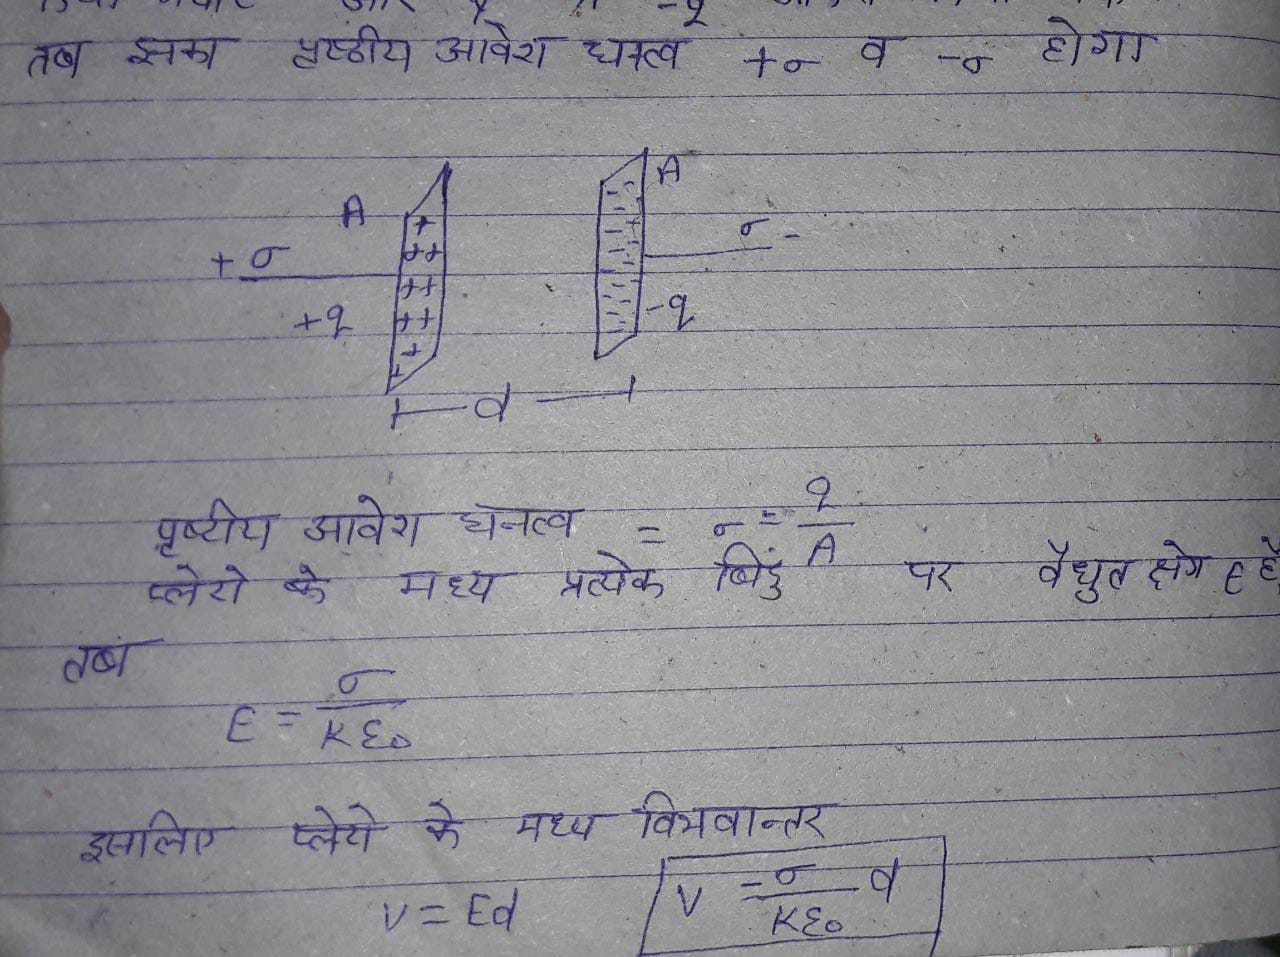 तब इसका पृष्ठीय आवेश घनत्व +σ व -σ होगा
A
A
+σ
σ-
+q
-q
d
पृष्ठीय आवेश घनत्व = σ = q/A
प्लेटो के मध्य प्रत्येक बिंदु पर वैधुत क्षेग E है
तब
E = σ/Kε₀
इसलिए प्लेटो के मध्य विभवान्तर
V = Ed
V = σ/Kε₀ d